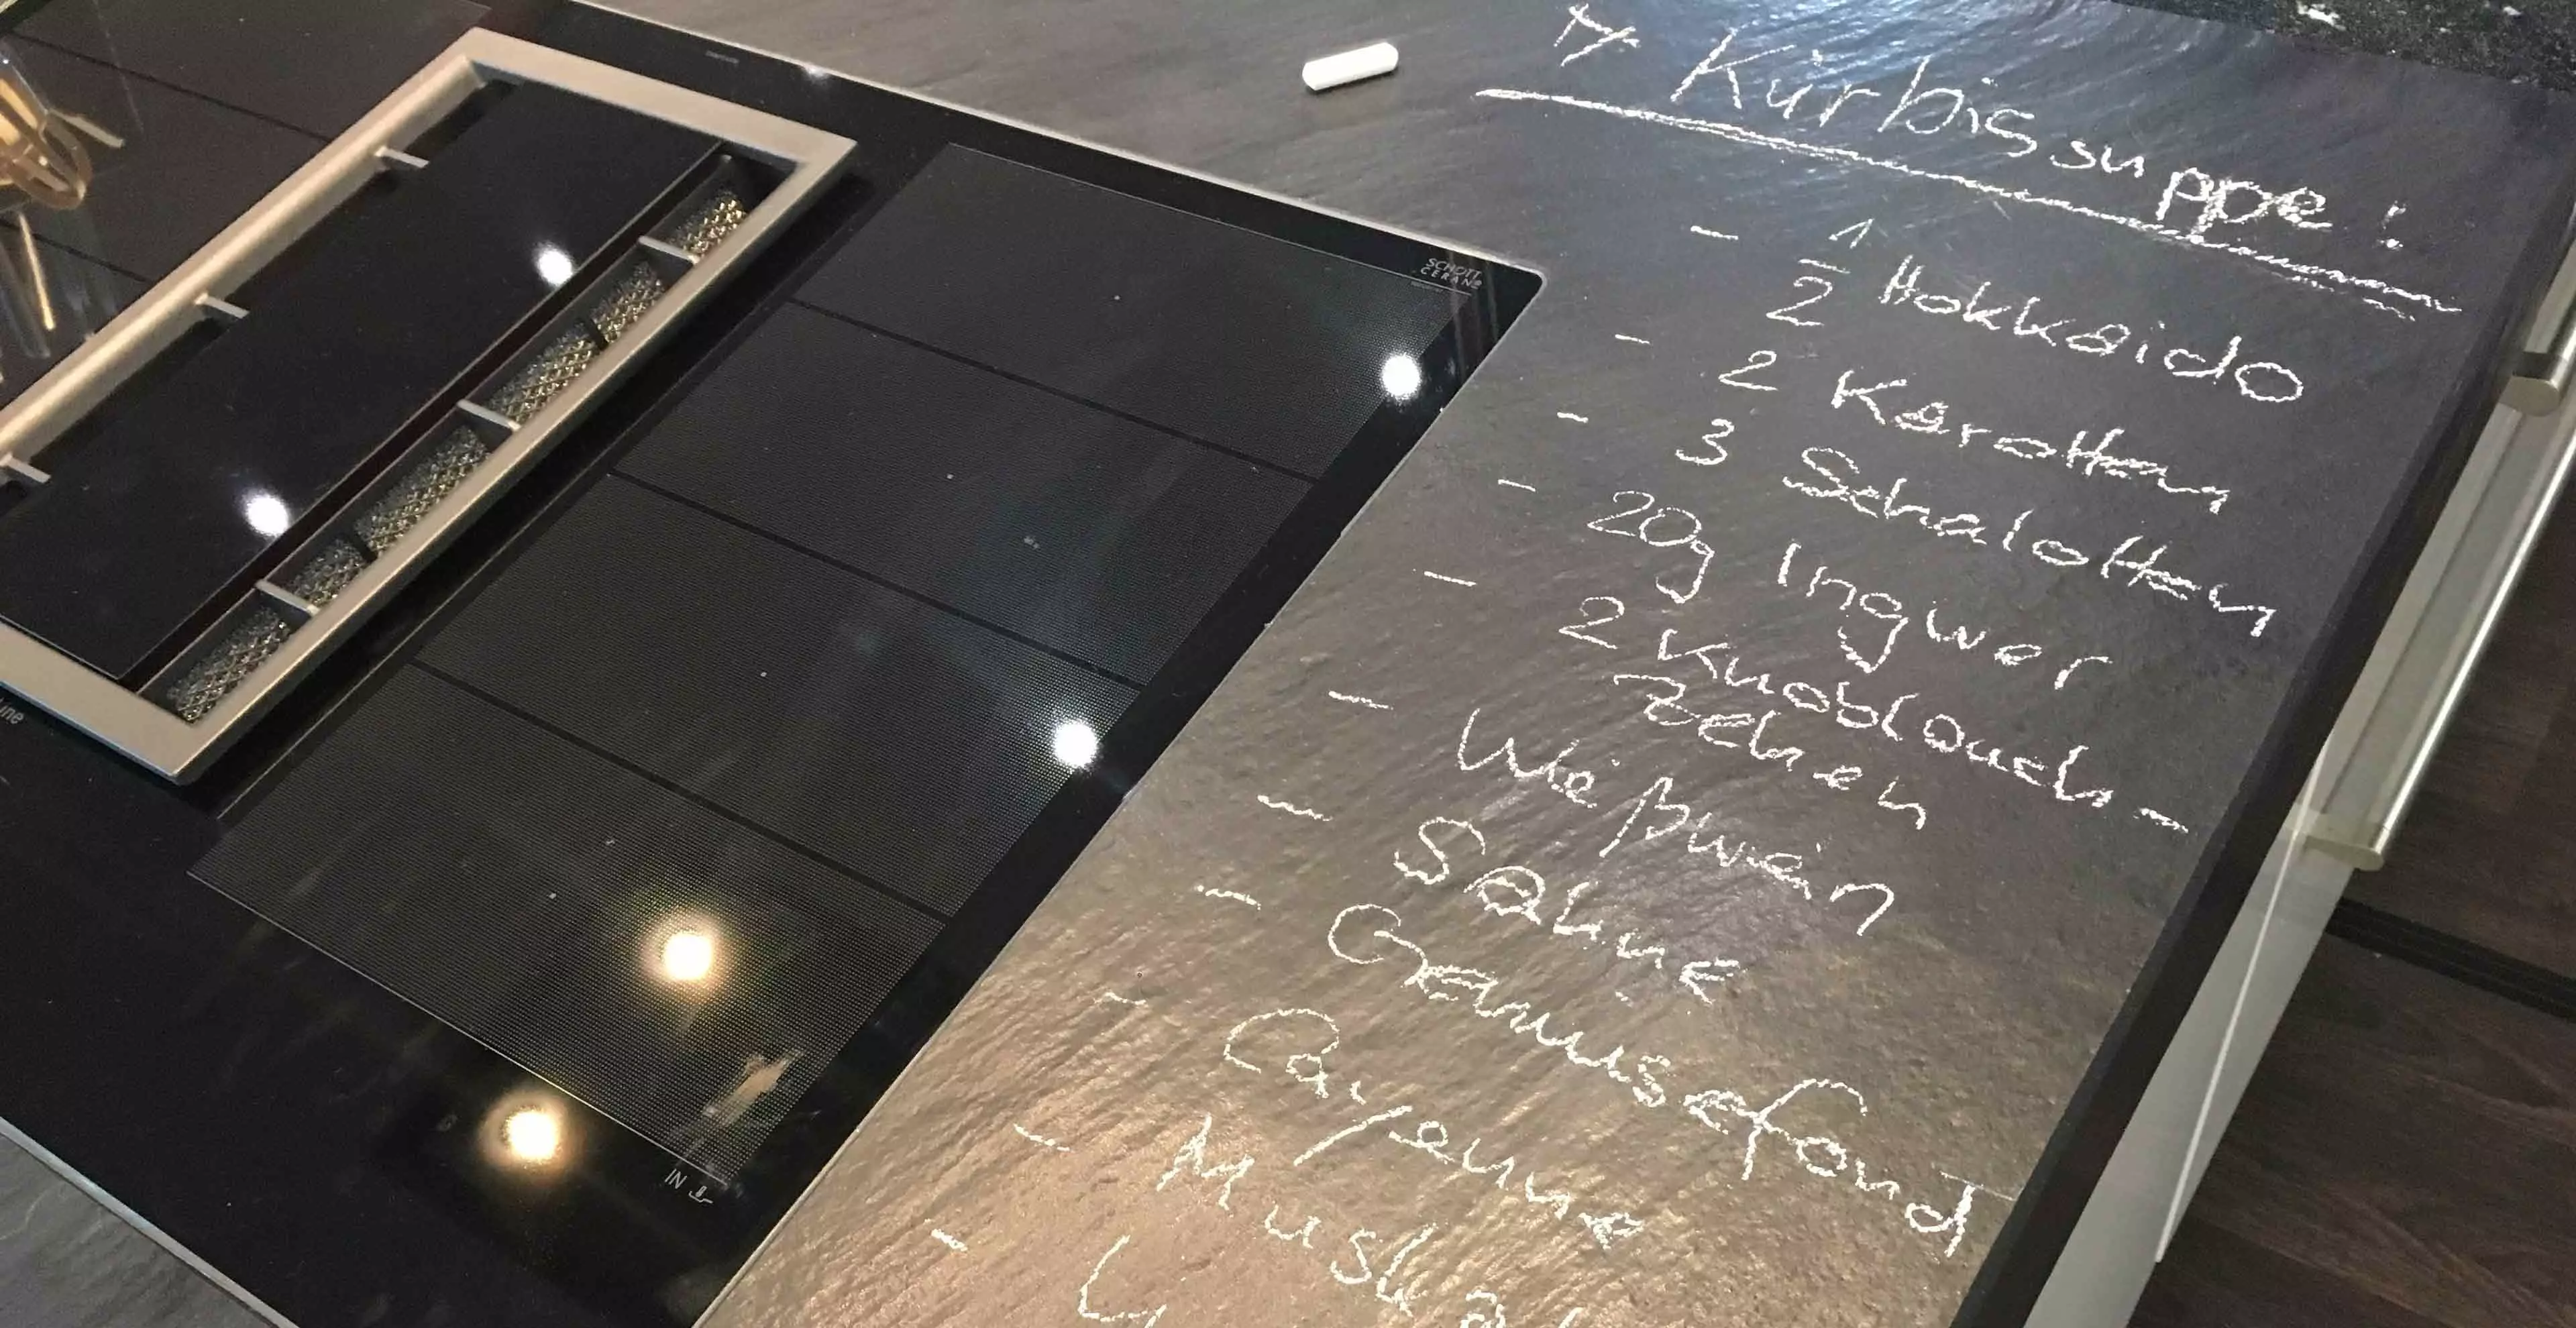 Kürbissuppe!
- 1/2 Hokkaido
- 2 Karotten
- 3 Schalotten
- 20g Ingwer
- 2 Knoblauch-
Zehen
- Weißwein
- Sahne
- Gemüsefond
- Cayenne
-
-
SCHOTT
CERAN®
IN